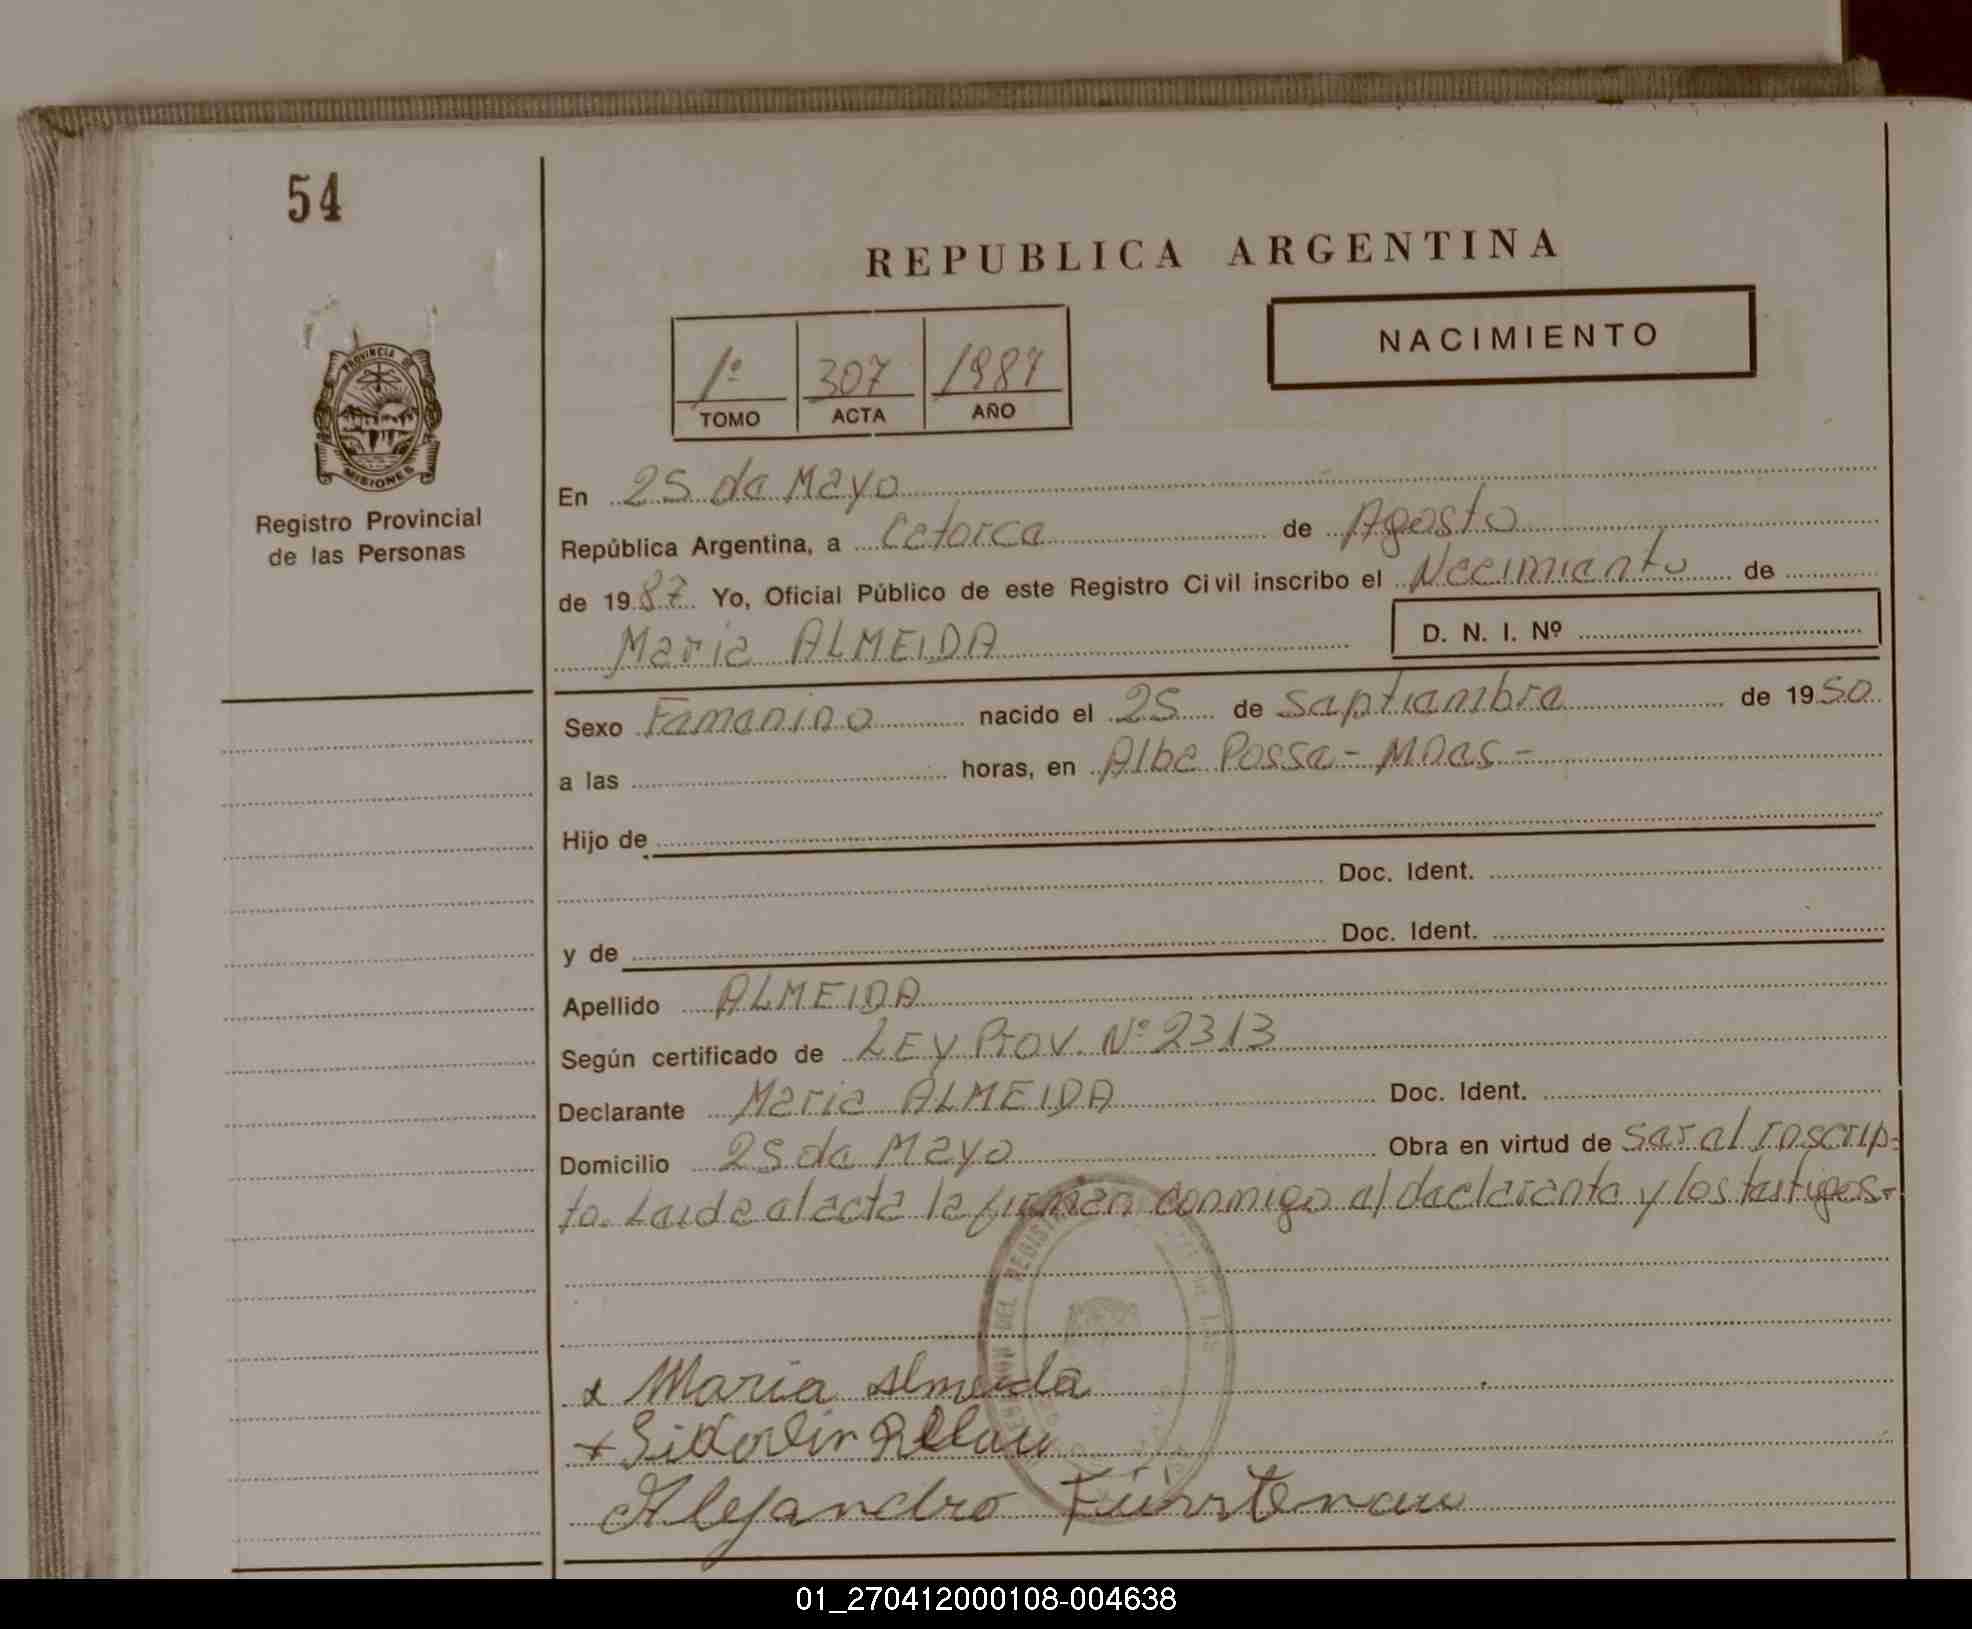 54
REPUBLICA ARGENTINA
NACIMIENTO
1º 307 1987
TOMO ACTA AÑO
PROVINCIA DE
MISIONES
Registro Provincial
de las Personas
En 25 de Mayo
República Argentina, a Catorce de Agosto
de 1987 Yo, Oficial Público de este Registro Civil inscribo el Nacimiento de
Maria ALMEIDA D. N. I. Nº
Sexo Femenino nacido el 25 de Septiembre de 1950
a las horas, en Alba Posse - Mnes -
Hijo de
Doc. Ident.
y de Doc. Ident.
Apellido ALMEIDA
Según certificado de LEY Prov. Nº 2313
Declarante Maria ALMEIDA Doc. Ident.
Domicilio 25 de Mayo Obra en virtud de ser el inscrip-
to. Leida el acta la firman conmigo el declarante y los testigos.-
x Maria Almeida
x
Alejandro Fürstenau
01_270412000108-004638